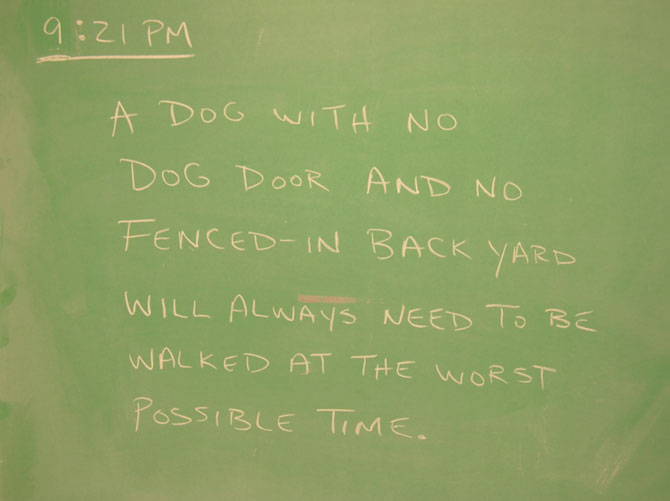 9:21 PM
A DOG WITH NO
DOG DOOR AND NO
FENCED-IN BACK YARD
WILL ALWAYS NEED TO BE
WALKED AT THE WORST
POSSIBLE TIME.